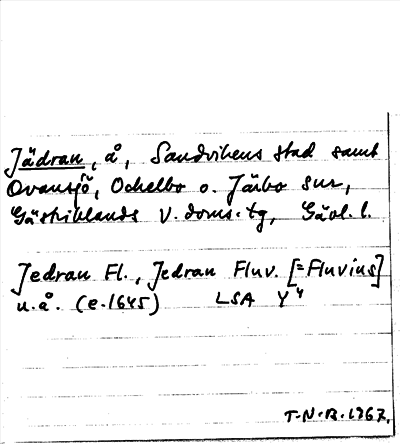 Jädran, å, Sandvikens stad samt
Ovansjö, Ockelbo o. Järbo snr,
Gästriklands V. doms.tg, Gävl. l.
Jedran Fl., Jedran Fluv. [=Fluvius]
u.å. (e.1645) LSA Y4
T.N.B. 1967.